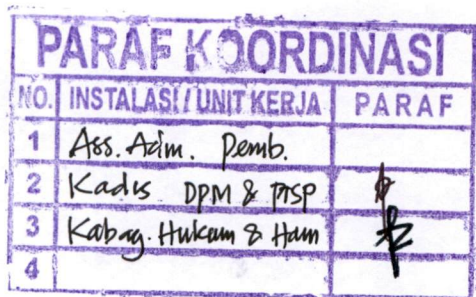 PARAF KOORDINASI
NO. INSTALASI / UNIT KERJA PARAF
1 Ass. Adm. Pemb.
2 Kadis DPM & PTSP
3 Kabag. Hukum & Ham
4